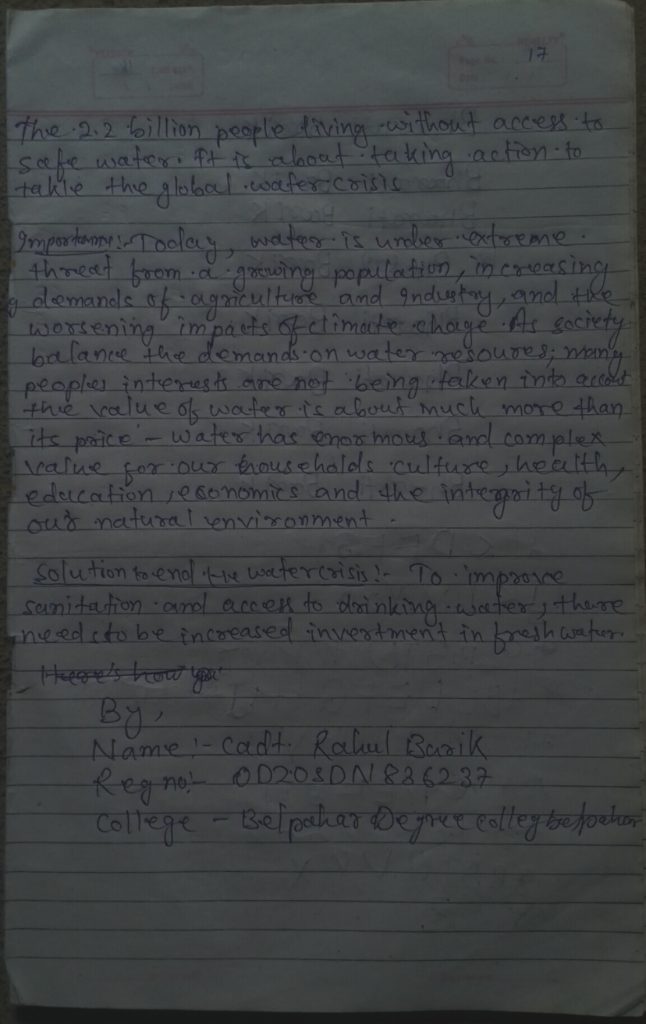 17
The 2.2 billion people living without access to
safe water. It is about taking action to
takle the global water crisis
Importanc:- Today, water is under extreme
threat from a growing population, increasing
g demands of agriculture and Industry, and the
worsening impacts of climate chage. As society
balance the demands on water resoures, many
peoples interests are not being taken into accout
the value of water is about much more than
its price - water has enormous and complex
value for our households culture, health,
education, economics and the intergrity of
our natural environment.
Solution to end the water crisis:- To improve
sanitation and access to drinking water, there
needs to be increased invertment in fresh water.
Here's how you
By,
Name:- Cadt. Rahul Barik
Reg no:- OD20SDN836237
College - Belpahar Degree colleg belpahar